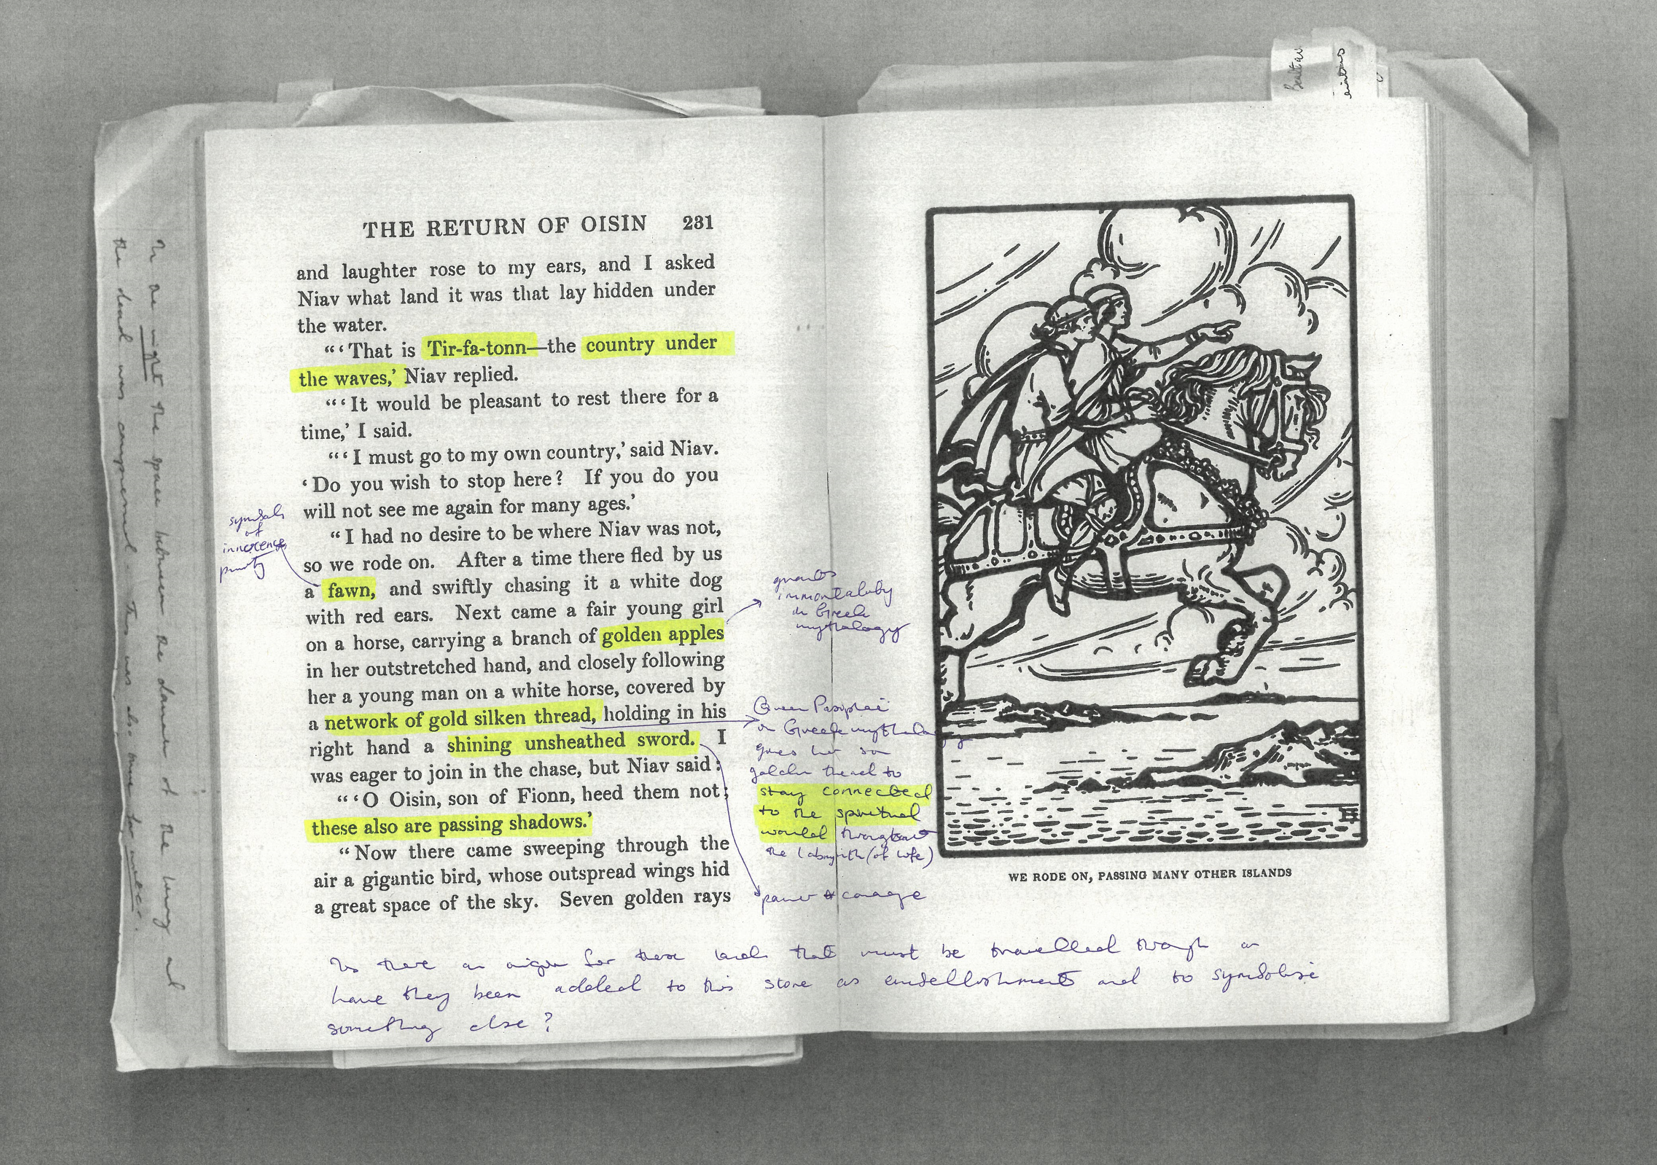 THE RETURN OF OISIN 231
and laughter rose to my ears, and I asked
Niav what land it was that lay hidden under
the water.
"'That is Tir-fa-tonn—the country under
the waves,' Niav replied.
"'It would be pleasant to rest there for a
time,' I said.
"'I must go to my own country,' said Niav.
'Do you wish to stop here? If you do you
will not see me again for many ages.'
"I had no desire to be where Niav was not,
so we rode on. After a time there fled by us
a fawn, and swiftly chasing it a white dog
with red ears. Next came a fair young girl
on a horse, carrying a branch of golden apples
in her outstretched hand, and closely following
her a young man on a white horse, covered by
a network of gold silken thread, holding in his
right hand a shining unsheathed sword. I
was eager to join in the chase, but Niav said:
"'O Oisin, son of Fionn, heed them not;
these also are passing shadows.'
"Now there came sweeping through the
air a gigantic bird, whose outspread wings hid
a great space of the sky. Seven golden rays
symbols
of
innocence
purity
grants
immortality
in Greek
mythology
Queen
in Greek mythology
gives her son
golden thread to
stay connected
to the spiritual
world throughout
the labyrinth (of life)
power & courage
Is there an origin for these lands that must be travelled through or
have they been added to this store as embellishments and to symbolise
something else?
In the night the space between the of the living and
the dead was compromised
WE RODE ON, PASSING MANY OTHER ISLANDS